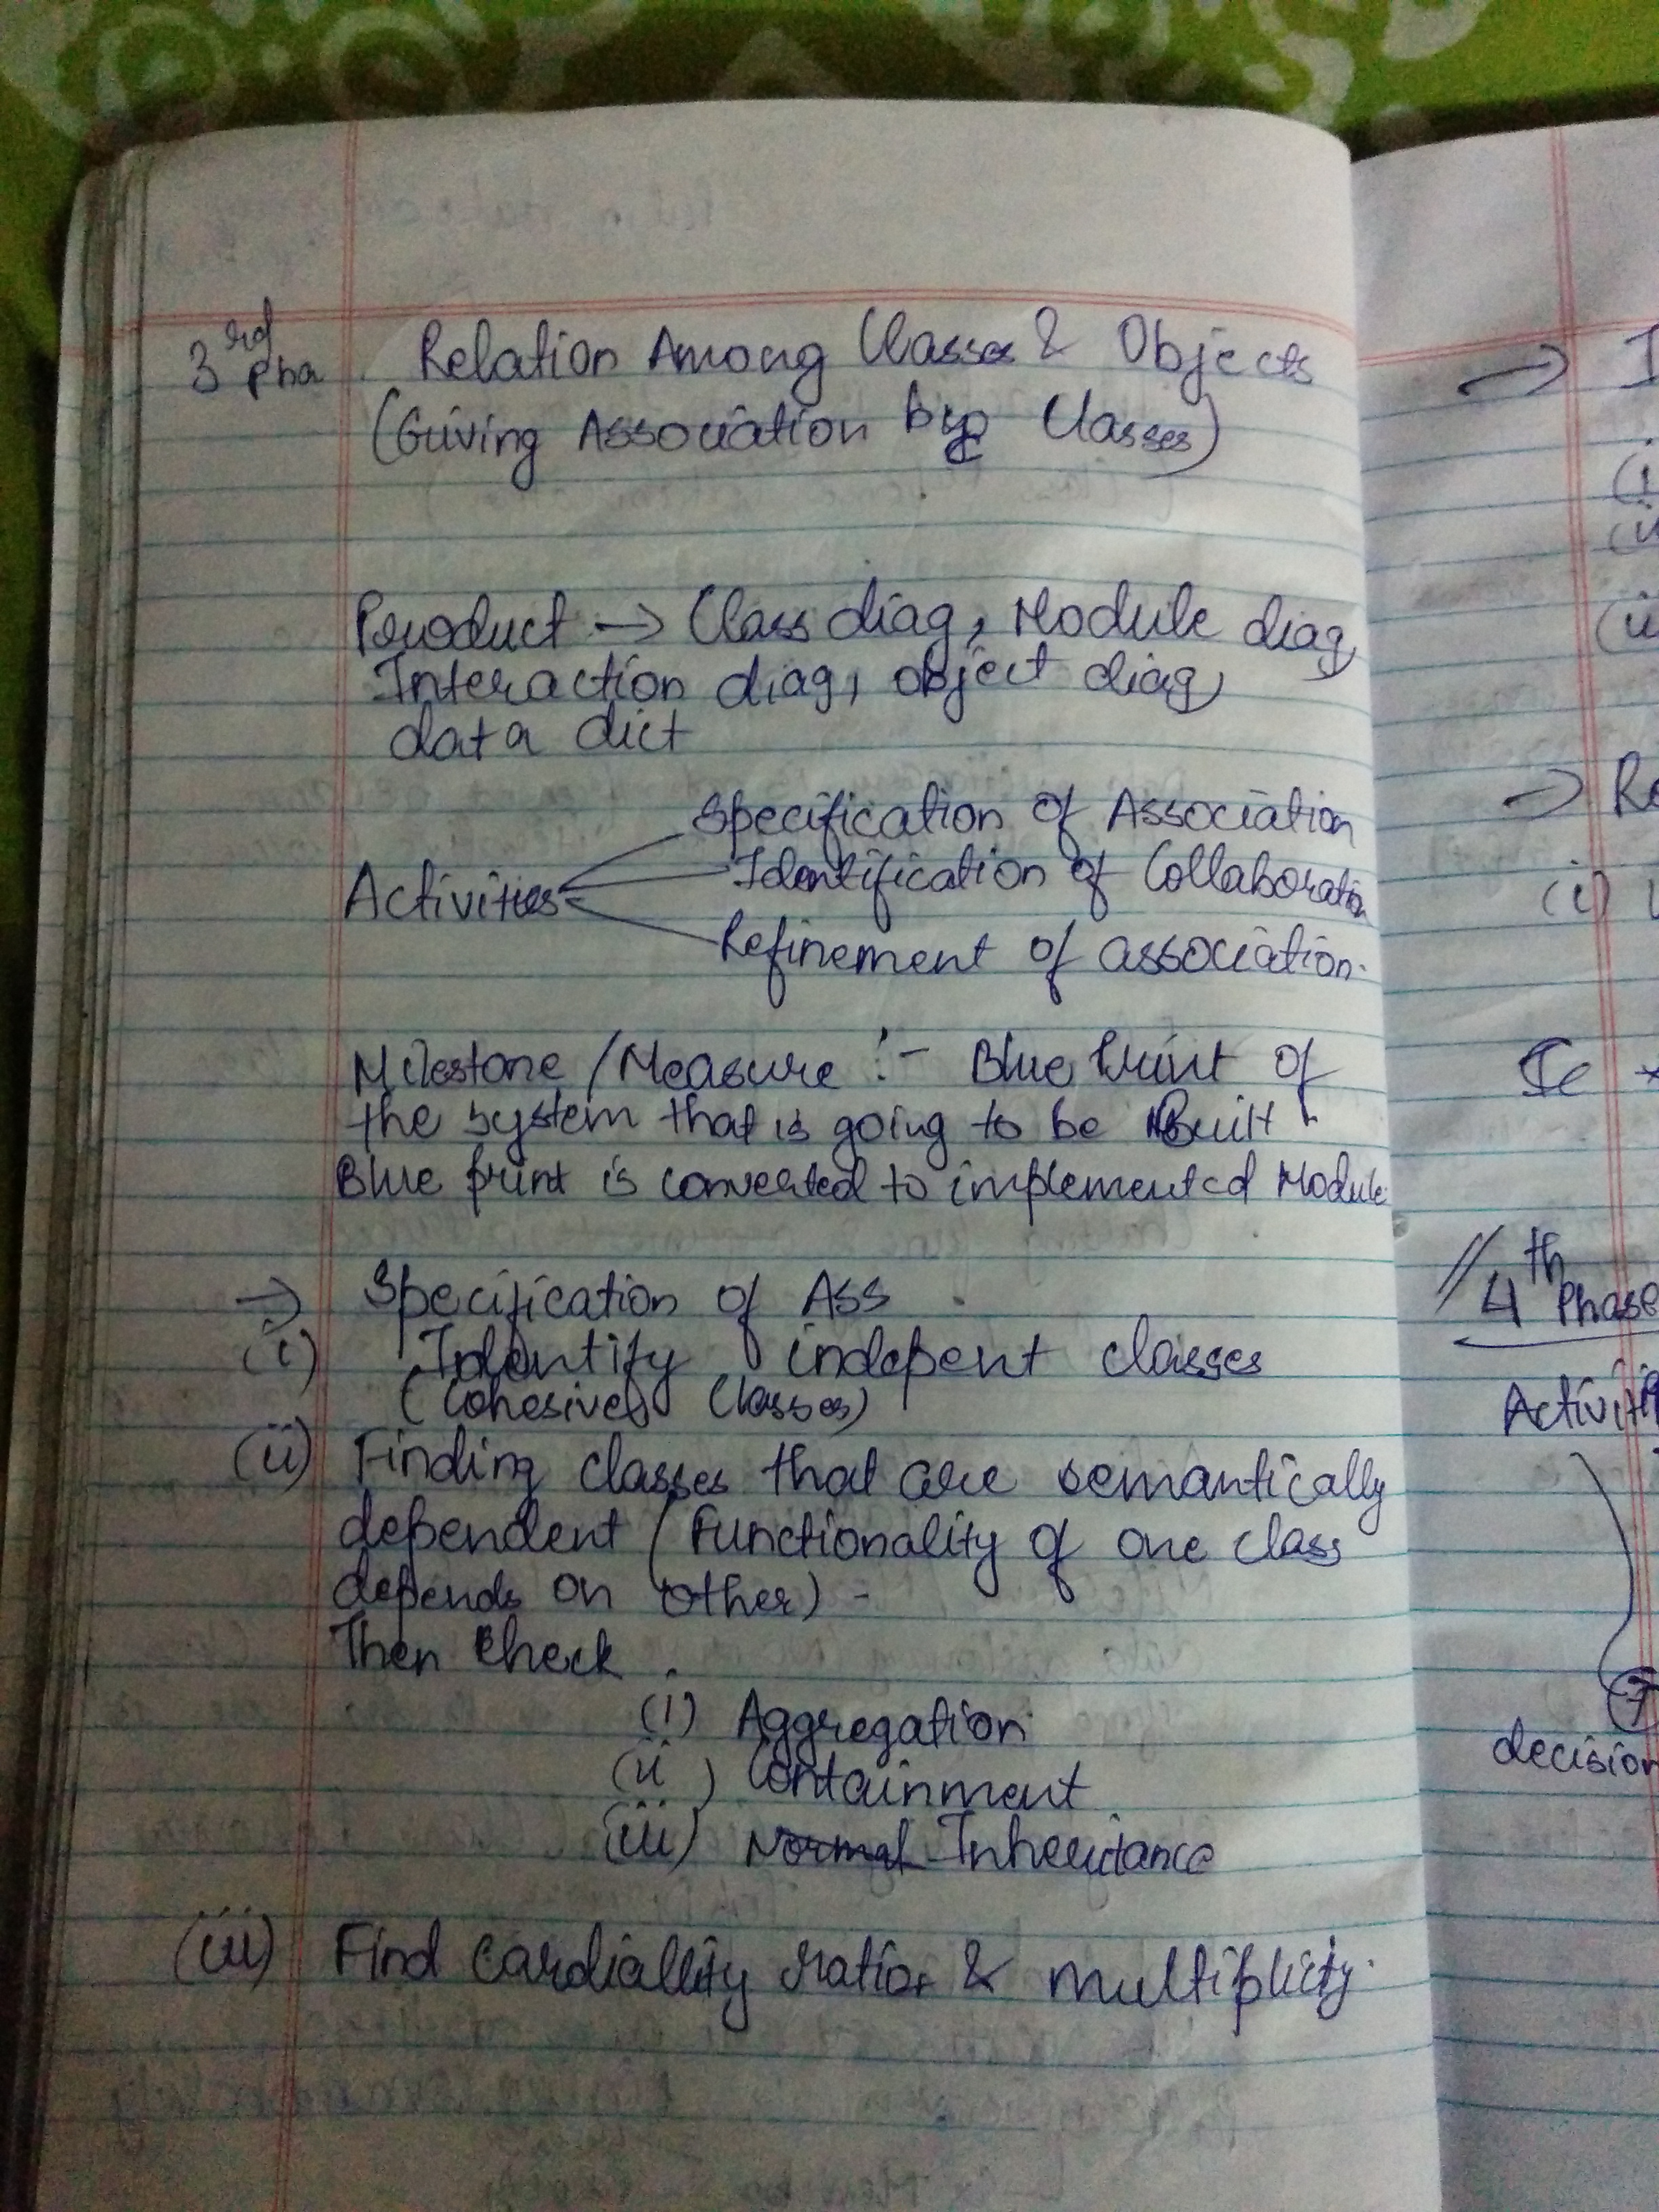 3rd pha Relation Among Classes & Objects
(Giving Association by Classes)
Product → Class diag, Module diag,
Interaction diag, object diag,
data dict
Specification of Association
Activities Identification of Collaboration
Refinement of association.
Milestone / Measure :- Blue Print of
the system that is going to be Built.
Blue print is converted to implemented Module
→ Specification of Ass.
(i) Indentify indepent classes
(Cohesive Classes)
(ii) Finding classes that are semantically
dependent (Functionality of one class
depends on other) -
Then Check.
(i) Aggregation
(ii) Containment
(iii) Normal Inheritance
(iii) Find Cardiallity ratio & multiplicity.
→ I
(i
(ii
→ Re
(i)
//4th Phase
Activiti
decision